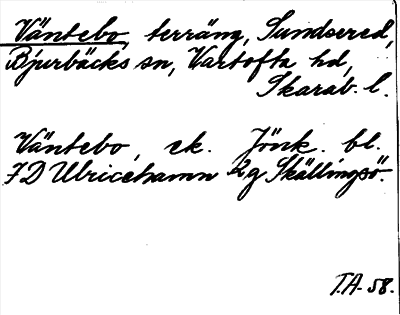 Väntebo, terräng, Sundsered,
Bjurbäcks sn, Vartofta hd,
Skarab. l.
Väntebo, ek. Jönk. bl.
7D Ulricehamn 2g Skällingsö.
T.A. 58.